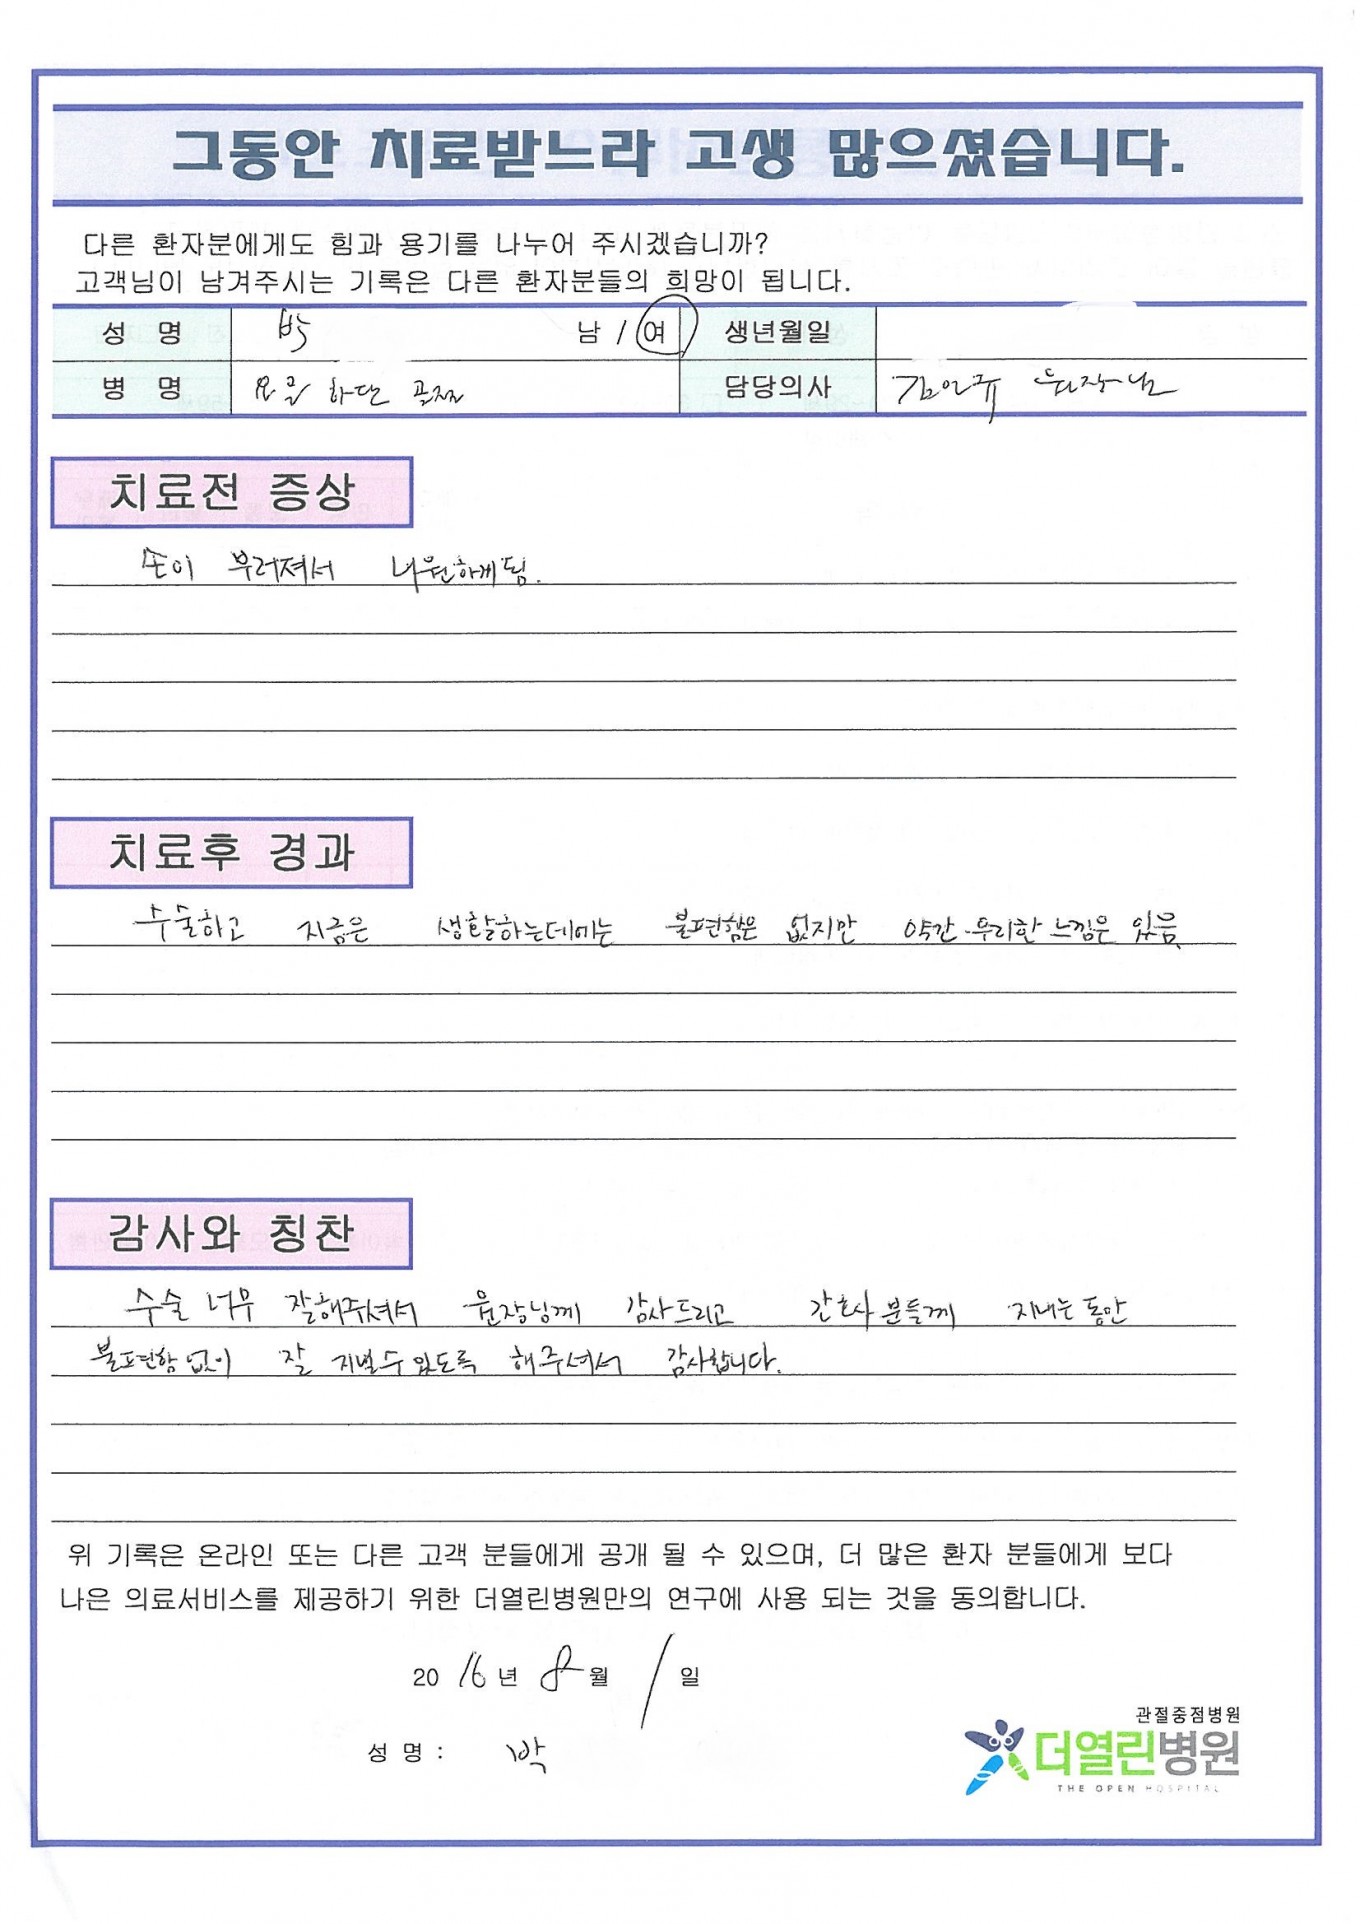 그동안 치료받느라 고생 많으셨습니다.
다른 환자분에게도 힘과 용기를 나누어 주시겠습니까?
고객님이 남겨주시는 기록은 다른 환자분들의 희망이 됩니다.
성 명 박 남 / 여 생년월일
병 명 요골 하단 골절 담당의사 원장님
치료전 증상
손이 부러져서 내원하게됨.
치료후 경과
수술하고 지금은 생활하는데에는 불편함은 없지만 약간 우리한 느낌은 있음.
감사와 칭찬
수술 너무 잘해주셔서 원장님께 감사드리고 간호사 분들께 지내는 동안
불편함 없이 잘 지낼수 있도록 해주셔서 감사합니다.
위 기록은 온라인 또는 다른 고객 분들에게 공개 될 수 있으며, 더 많은 환자 분들에게 보다
나은 의료서비스를 제공하기 위한 더열린병원만의 연구에 사용 되는 것을 동의합니다.
20 16 년 8 월 1 일
관절중점병원
성 명 : 박
더열린병원
THE OPEN HOSPITAL